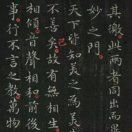 其徼此兩者同出而
妙之門
天下皆知美之為美
不善矣故有無相生
相傾音聲相和前後
事行不言之教萬物